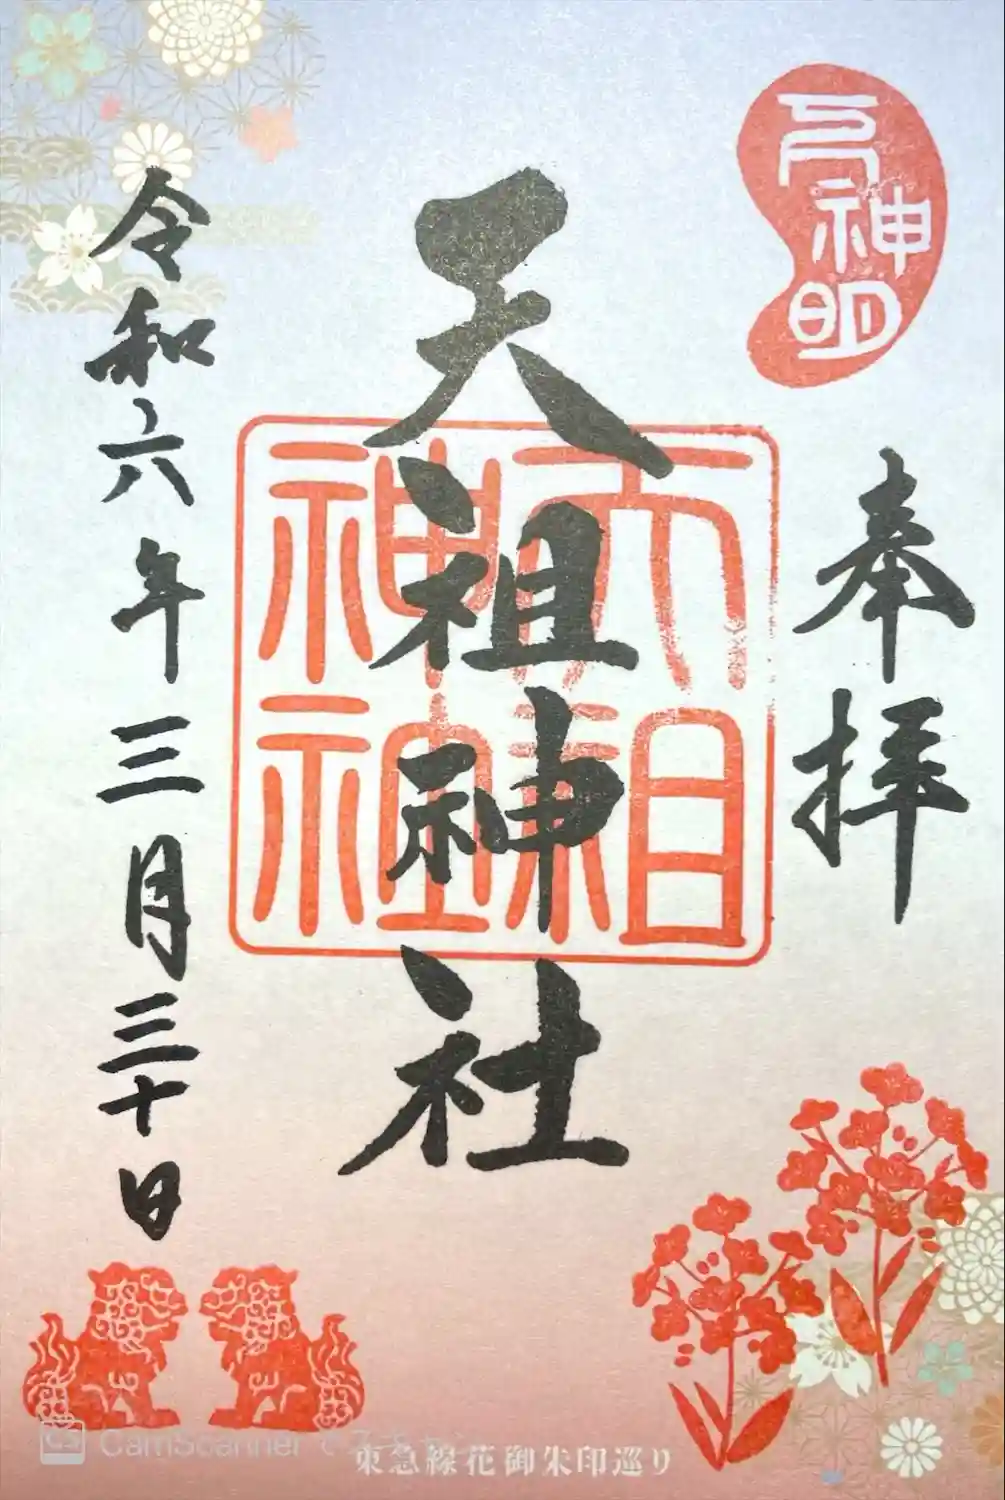 神明
奉拝
天祖神社
天祖神社
令和六年三月三十日
東急線花御朱印巡り
CamScanner でスキャン